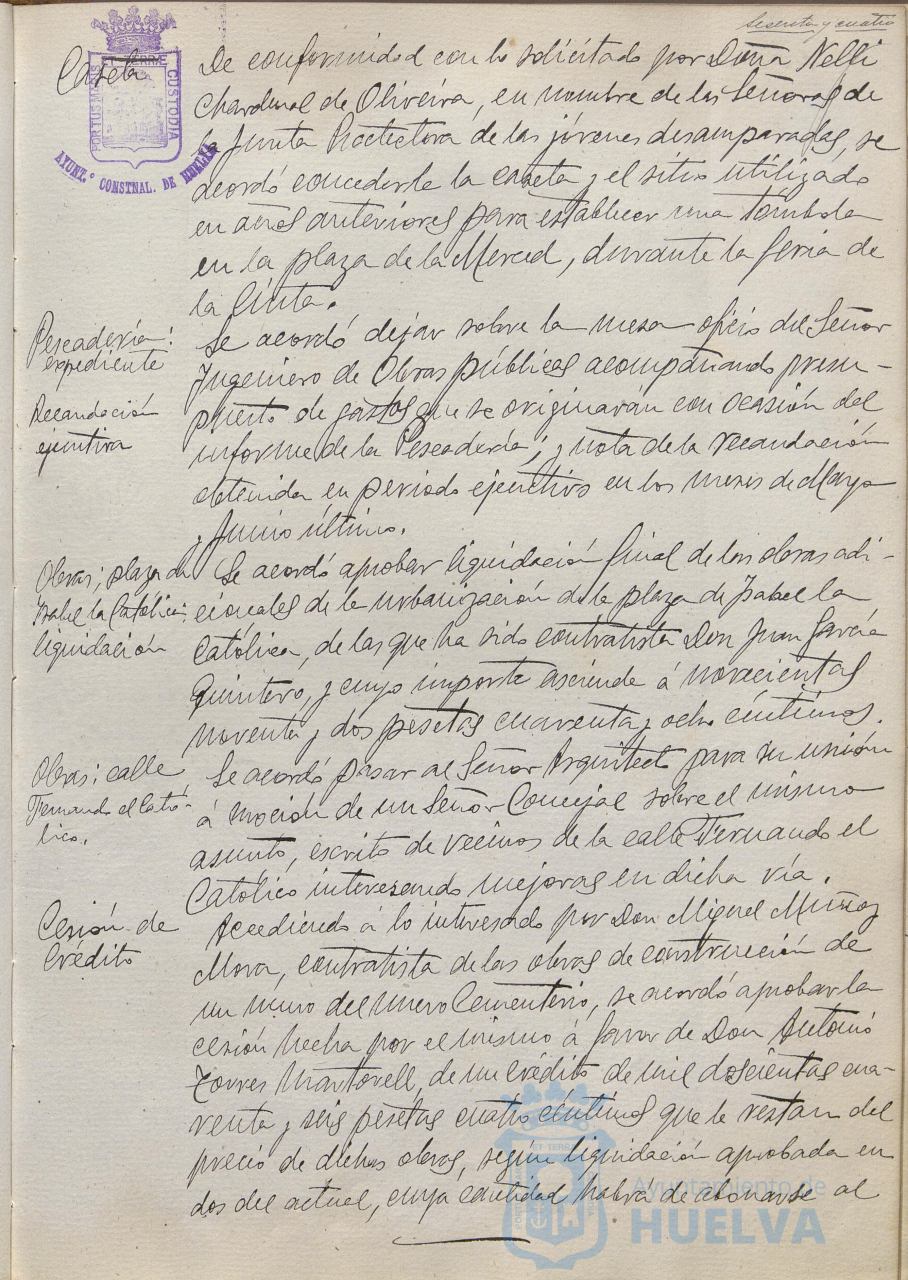 Sesenta y cuatro
Caseta
ET TERRÆ
PORTUS MARIS
CUSTODIA
AYUNT.º CONSTNAL. DE HUELVA
De conformidad con lo solicitado por Doña Nelli
Chardenal de Oliveira, en nombre de las Señoras de
la Junta Protectora de las jóvenes desamparadas, se
acordó concederle la caseta y el sitio utilizado
en años anteriores para establecer una Tómbola
en la plaza de la Merced, durante la feria de
la Cinta.
Pescadería:
expediente
Recaudación
ejecutiva
Se acordó dejar sobre la mesa oficio del Señor
Ingeniero de Obras públicas acompañando presu-
puesto de gastos que se originarán con ocasión del
informe de la Pescadería; y nota de la recaudación
obtenida en periodo ejecutivo en los meses de Mayo
y Junio último.
Obras; plaza de
Isabel la Católica:
liquidación
Se acordó aprobar liquidación final de las obras adi-
cionales de la urbanización de la plaza de Isabel la
Católica, de las que ha sido contratista Don Juan García
Quintero, y cuyo importe asciende á novecientas
noventa y dos pesetas cuarenta y ocho céntimos.
Obras; calle
Fernando el Cató-
lico.
Se acordó pasar al Señor Arquitecto para su unión
á moción de un Señor Concejal sobre el mismo
asunto, escrito de vecinos de la calle Fernando el
Católico interesando mejoras en dicha vía.
Cesión de
Crédito
Accediendo á lo interesado por Don Miguel Muñoz
Mora, contratista de las obras de construcción de
un muro del nuevo Cementerio, se acordó aprobar la
cesión hecha por el mismo á favor de Don Antonio
Torres Martorell, de un crédito de mil doscientas cua-
renta y seis pesetas cuatro céntimos que le restan del
precio de dichas obras, según liquidación aprobada en
dos del actual, cuya cantidad habrá de abonarse al
Ayuntamiento de
HUELVA